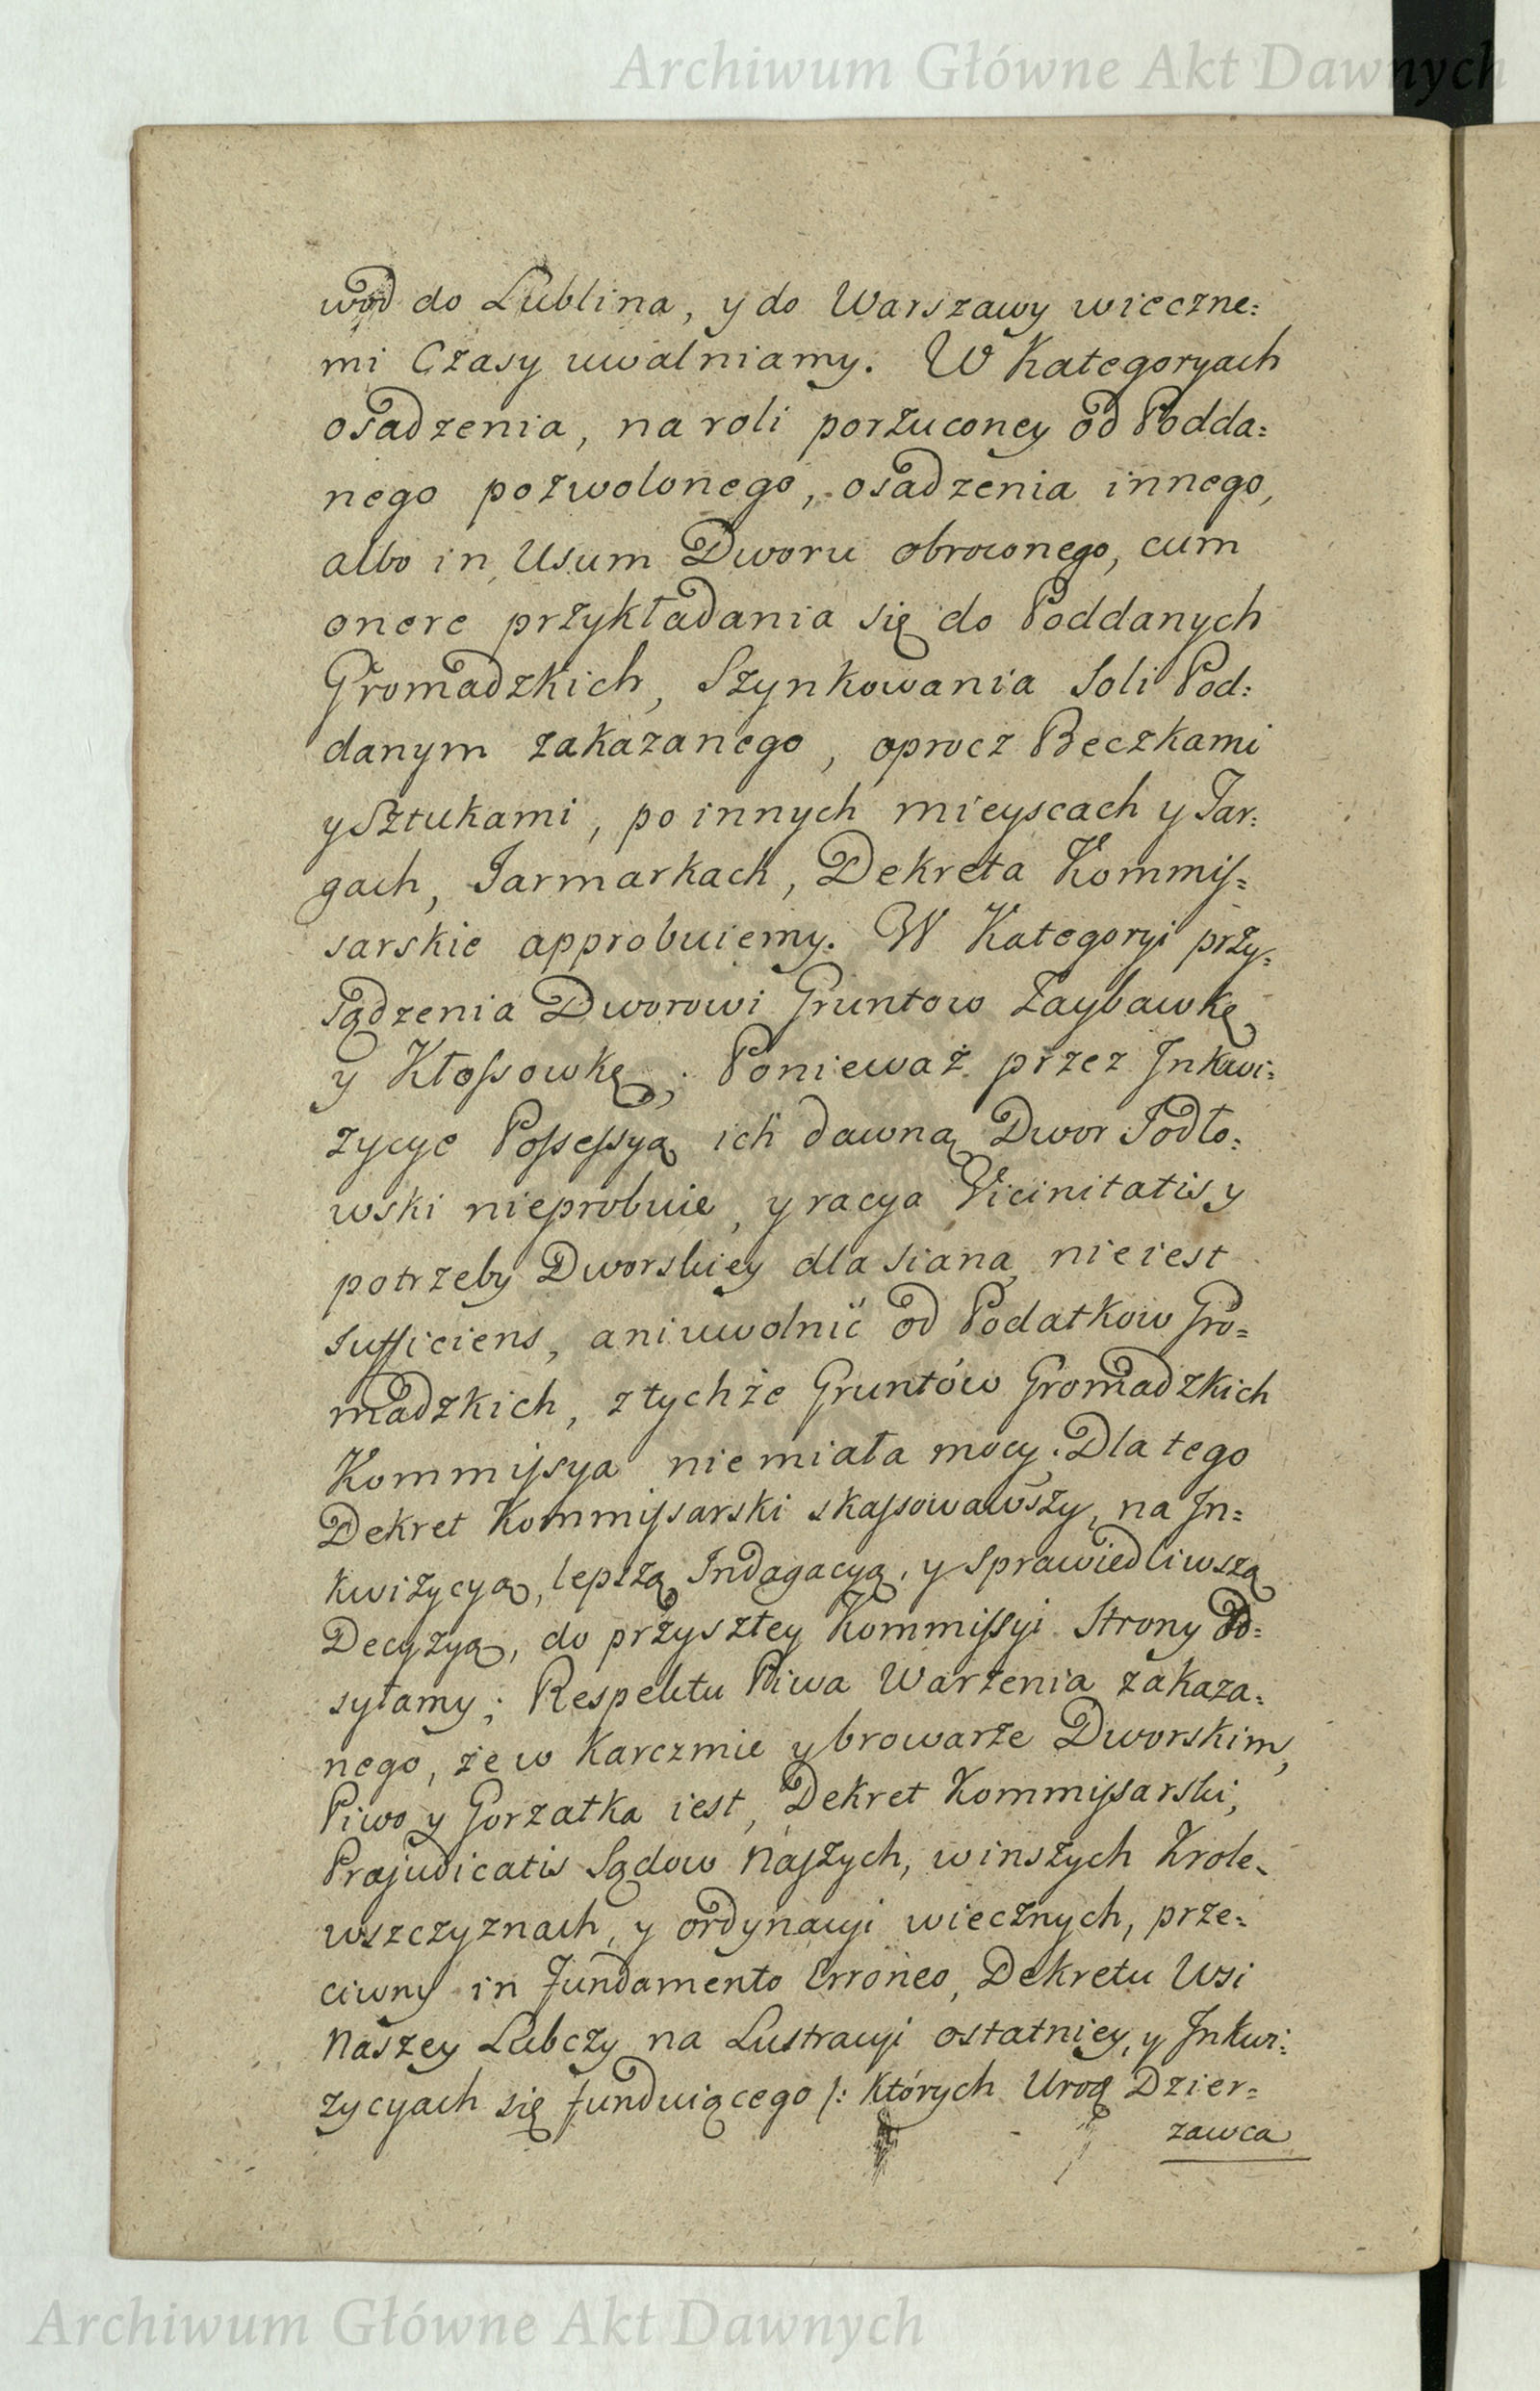 Archiwum Główne Akt Dawnych
wod do Lublina, y do Warszawy wieczne:
mi Czasy uwalniamy. W Kategoryach
osadzenia, na roli porzuconey od Podda:
nego pozwolonego, osadzenia innego,
albo in Usum Dworu obroconego, cum
onere przykładania się do Poddanych
Gromadzkich, Szynkowania Soli Pod:
danym zakazanego, oprocz Beczkami
y Sztukami, po innych mieyscach y Tar:
gach, Jarmarkach, Dekreta Kommis=
sarskie approbuiemy. W Kategoryi przy=
sądzenia Dworowi Gruntow Zaybawkę
y Kłossowkę; Ponieważ przez Inkwi:
zycye Possessyą ich dawną Dwor Jodło:
wski nieprobuie, y racya Vicinitatis y
potrzeby Dworskiey dla siana nieiest
sufficiens, ani uwolnić od Podatkow Gro=
madzkich, z tychże Gruntów Gromadzkich
Kommissya niemiała mocy. Dla tego
Dekret Kommissarski skassowawszy, na In=
kwizycyą, lepszą Indagacyą, y sprawiedliwszą
Decyzyą, do przyszłey Kommissyi Strony Od=
syłamy; Respektu Piwa Warzenia zakaza=
nego, że w Karczmie y browarze Dworskim,
Piwo y Gorzałka iest, Dekret Kommissarski,
Præjudicatis Sądow Naszych, w inszych Krole=
wszczyznach, y ordynacyi wiecznych, prze=
ciwny in Fundamento Erroneo, Dekretu Wsi
Naszey Lubczy na Lustracyi ostatniey, y Inkwi:
zycyach się funduiącego /: Których Uroą Dzier=
zawca
Archiwum Główne Akt Dawnych